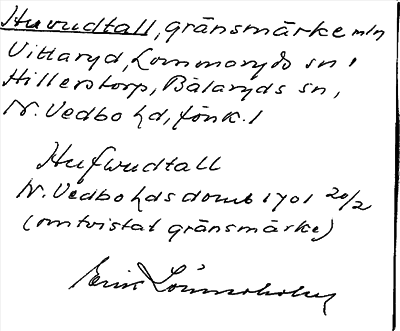 Huvudtall, gränsmärke mln
Vittaryd, Lommaryds sn,
Hillerstorp, Bälaryds sn,
N. Vedbo hd, Jönk. l
Hufwudtall
N. Vedbo hds domb 1701 20/2
(omtvistat gränsmärke)
Erik